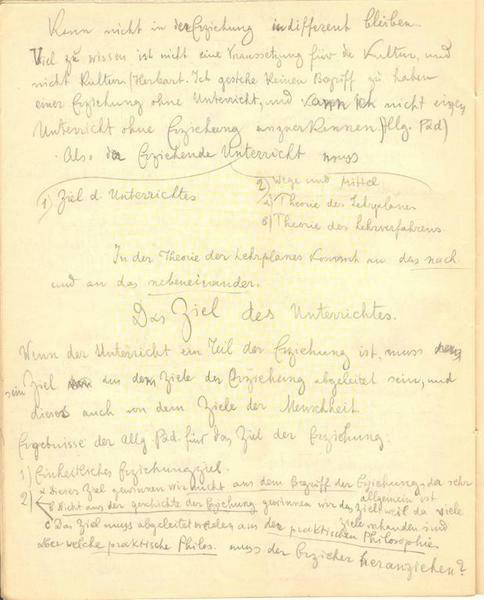 Kann nicht in der Erziehung indifferent bleiben.
Viel zu wissen ist nicht eine Voraussetzung für die Kultur, und
nicht Kultur Herbart. Ich gestehe keinen Begriff zu haben
einer Erziehung ohne Unterricht, und kann Ich nicht einen
Unterricht ohne Erziehung anzuerkennen. (Allg. Päd)
Also der Erziehende Unterricht muss
1) Ziel d. Unterrichtes
2) Wege und Mittel
a) Theorie des Lehrplanes
b) Theorie des Lehrverfahrens
In der Theorie der Lehrplanes kommt an das nach
und an das nebeneinander.
Das Ziel des Unterrichtes.
Wenn der Unterricht ein Teil der Erziehung ist, muss
sein Ziel aus dem Ziele der Erziehung abgeleitet sein, und
dieses auch von dem Ziele der Menschheit
Ergebnisse der Allg Päd. für das Ziel der Erziehung:
1) Einheitliches Erziehungsziel.
2) a Dieses Ziel gewinnen wir nicht aus dem Begriff der Erziehung, da sehr
allgemein ist
b Nicht aus der Geschichte der Erziehung gewinnen wir das Ziel weil da viele
Ziele vorhanden sind
c Das Ziel muss abgeleitet werden aus der praktischen Philosophie
Aber welche praktische Philos. muss der Erzieher heranziehen?